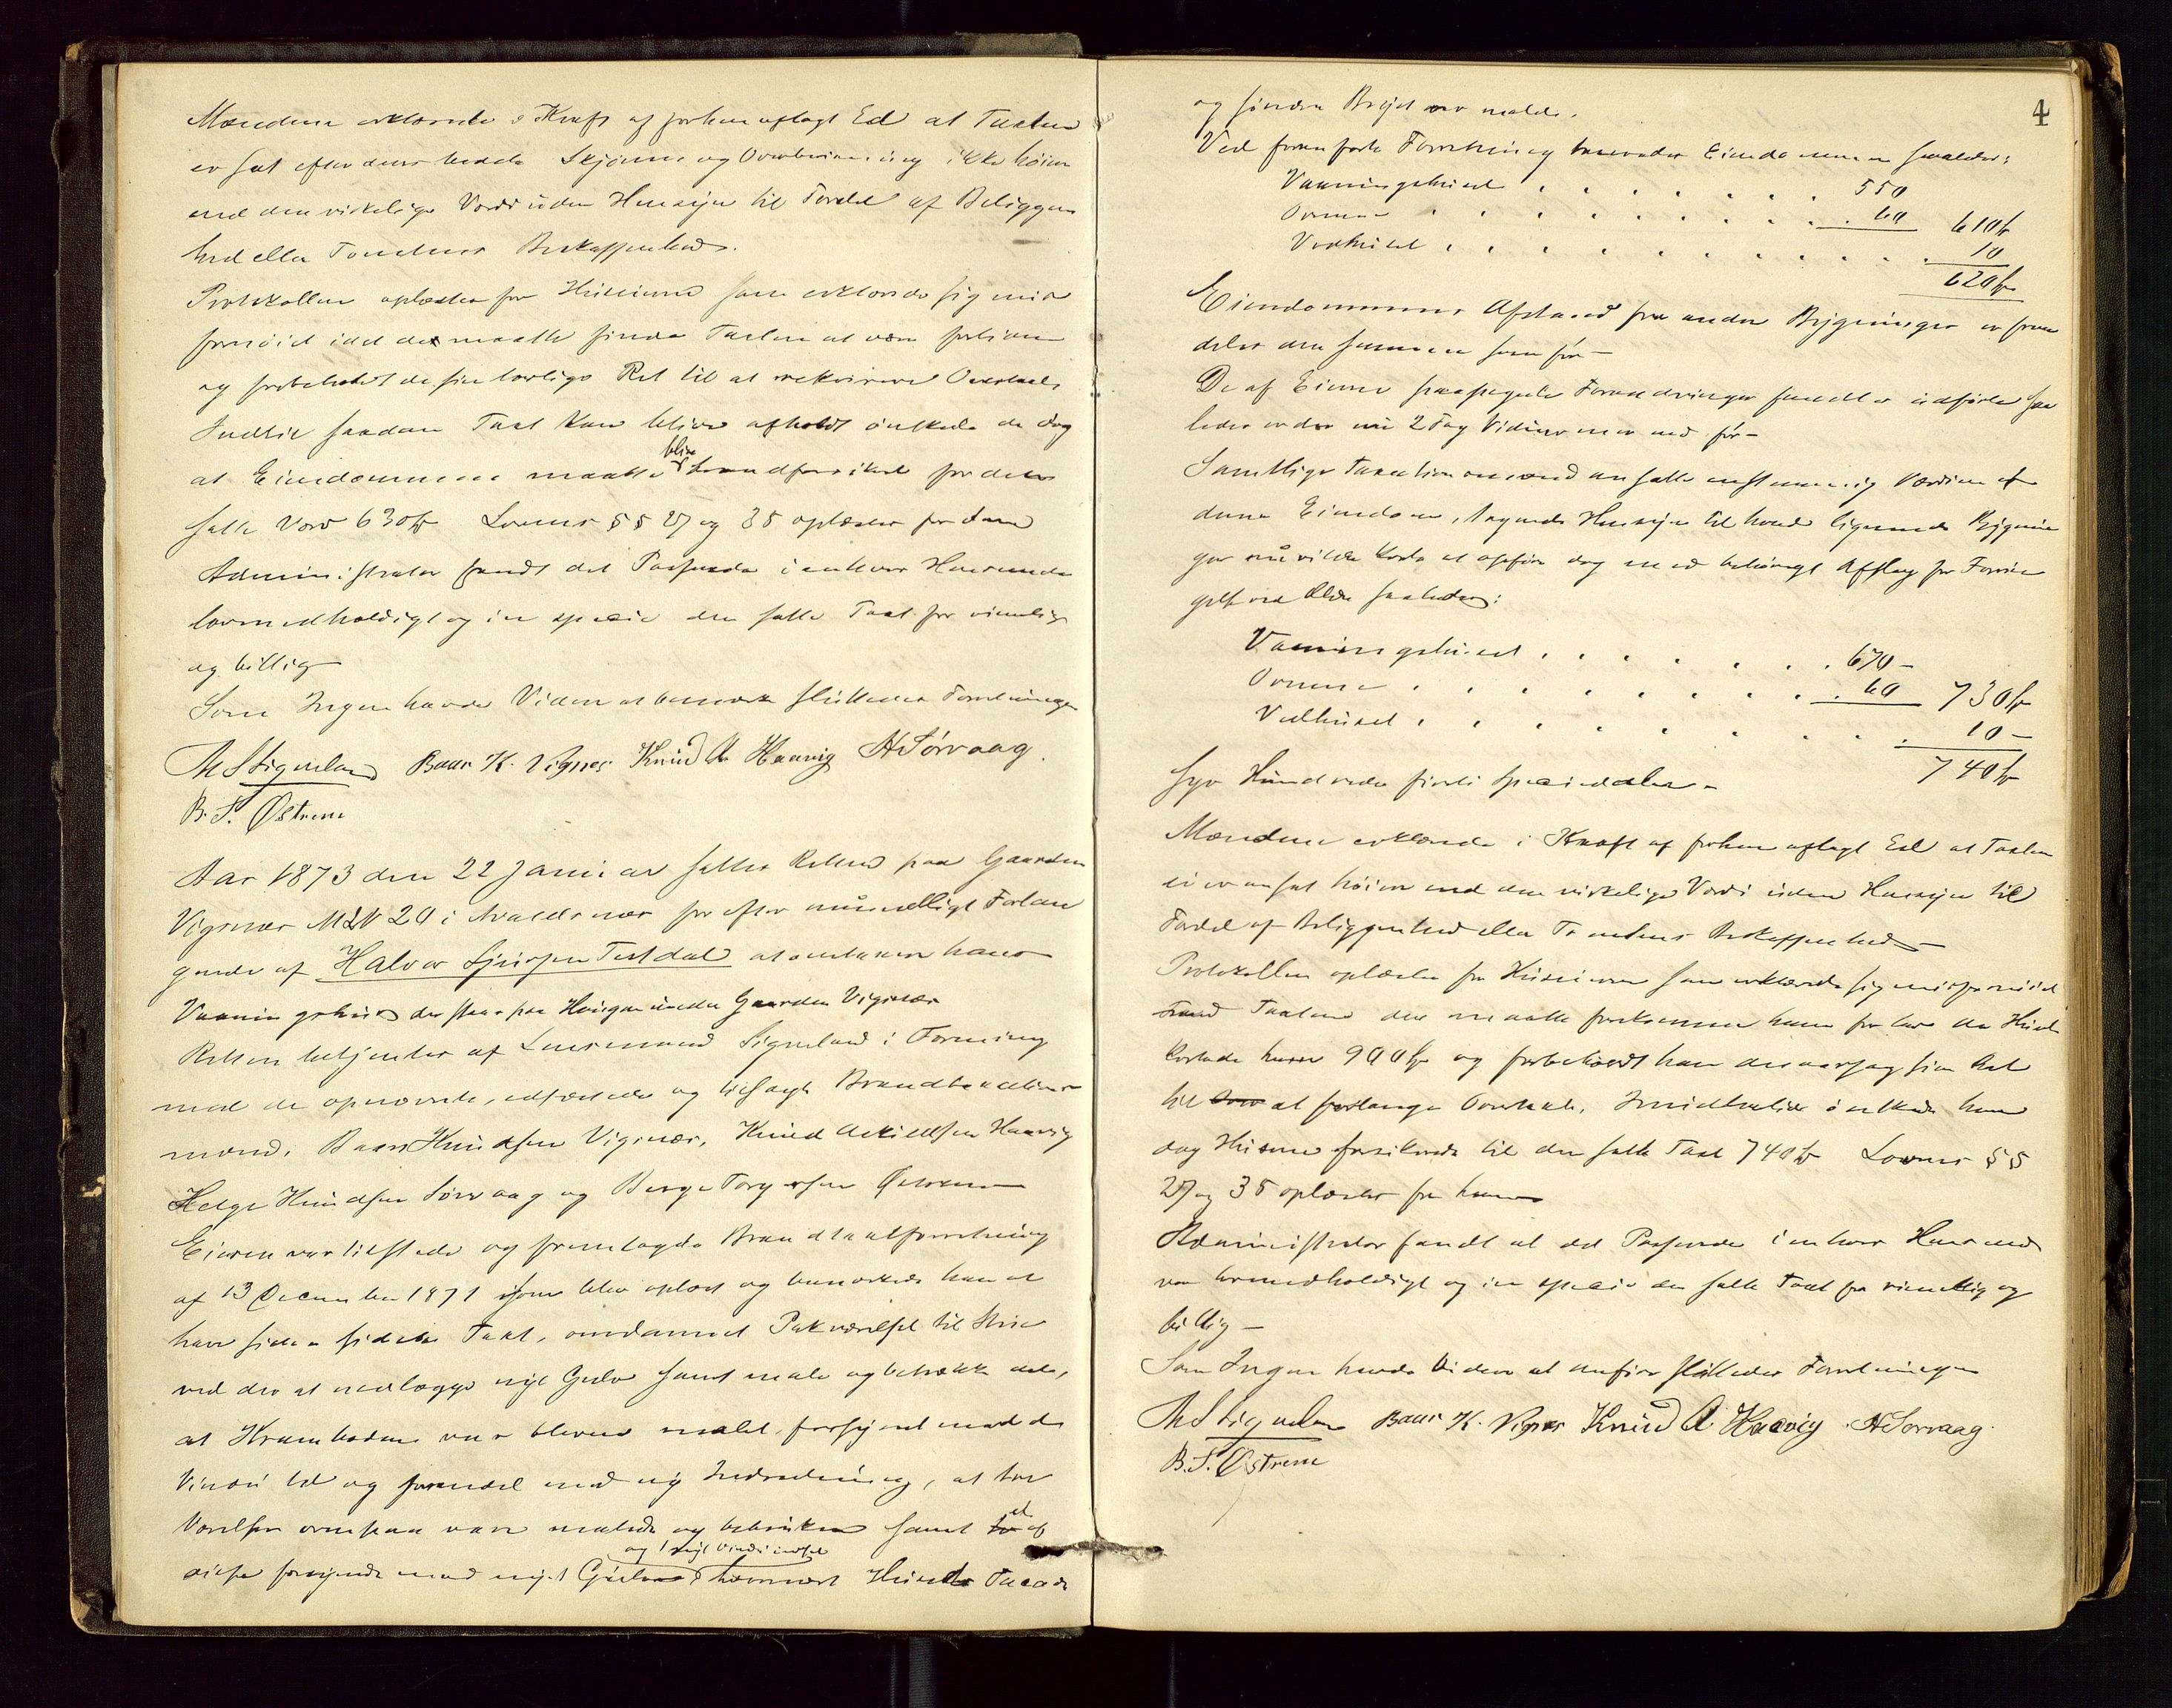 Mændene erklærede i Kraft af forhen aflagt Ed at Taxten
er sat efter deres bedste Skjønnende og Overbeviisning ikke høiere
end den virkelige Værdi uden Hensyn til Fordel af Beliggen
hed eller Tomtens Beskaffenhed.
Protokollen oplæstes for Huseierne som erklærede sig mis
fornøiet idet de maatte finde Taxten at være for liden
og forbeholdt de sin lovlige Ret til at rekvirere Overtaxt
Indtil saadan Taxt kan blive afholdt ønskede de dog
at Eiendommene maatte blive brandforsikret for den
satte Værd 630 Sp Lovens §§ 27 og 35 oplæstes for dem
Administrator fandt det Passerede i enhver Henseende
lovmedholdigt og in specie den satte Taxt for rimelig
og billig
Som Ingen havde Videre at bemærke sluttedes Forretningen
M Signeland Baar K. Vignes Knud A Haavig H Sørvaag.
B. T. Østrem
Aar 1873 den 22 Januar sattes Retten paa Gaarden
Vigsnæs MN 20 i Avaldsnæs for efter mundtligt Forlan
gende af Halvor Sjursen Testdal at omtaxere hans
Vaaningshus der staar paa Haugen under Gaarden Vigsnæs
Retten betjentes af Lensmand Signeland i Forening
med de opnævnte, edfæstede og tilsagte Brandtaxations
mænd. Baar Knudsen Vigsnæs, Knud Askildsen Haavig
Helge Knudsen Sørvaag og Børge Torgersen Østrem
Eieren var tilstede og fremlagde Brandtaxtforretning
af 13 December 1871 som blev oplæst og bemærkede han at
have siden sidste Taxt, omdannet Pakværelset til Stue
ved der at nedlægge nyt Gulv samt male og betrække det,
at Kramboden var bleven malet, forsynet med de
Vindu til og forandret med ny Indredning, at tre
Værelser ovenpaa vare malede og betrukne samt et af
disse forsynede med nyt Gulv og 1 nyt Vindu indsat hvornæst Husets Facade
4
og søndre Bryst var malede.
Ved foranførte Forretning Eiendommen saaledes:
Vaaningshuset . . . . . . . 550
Ovnene . . . . . . . . . 60 610 Sp
Vedhuset . . . . . . . . . 10
620 Sp
Eiendommens Afstand fra andre Bygninger er frem
deles den samme som før –
De af Eieren paapegede Forandringer fandtes udførte saa
ledes er der nu 2 Fag Vinduer mer end før –
Samtlige Taxationsmænd ansatte enstemmig Værdien af
denne Eiendom, tagende Hensyn til hvad lignende Bygnin
ger nu vilde koste at opføre dog med behørigt Afslag for Forrin
gelse ved Ælde saaledes:
Vaaningshuset . . . . . . . 670 –
Ovnene . . . . . . . . . 60 730 Sp
Vedhuset . . . . . . . . . 10 –
740 Sp
Syv Hundrede firti Speciedaler –
Mændene erklærede i Kraft af forhen aflagt Ed at Taxten
ei er ansat høiere end den virkelige Værdi uden Hensyn til
Fordel af Beliggenhed eller Tomtens Beskaffenhed –
Protokollen oplæstes for Huseieren som erklærede sig misfornøiet
med Taxten der maatte forekomme ham for lav da Huset
kostede ham 900 Sp og forbeholdt han desaarsag sin Ret
til at forlange Overtaxt. Imidlertid ønskede han
dog Husene forsikrede til den satte Taxt 740 Sp Lovens §§
27 og 35 oplæstes for ham
Administrator fandt at det Passerede i enhver Henseende
var lovmedholdigt og in specie den satte Taxt for rimelig og
billig –
Som Ingen havde Videre at anføre sluttedes Forretningen
M Signeland Baar K. Vignes Knud A Haavig H Sørvaag.
B. T. Østrem